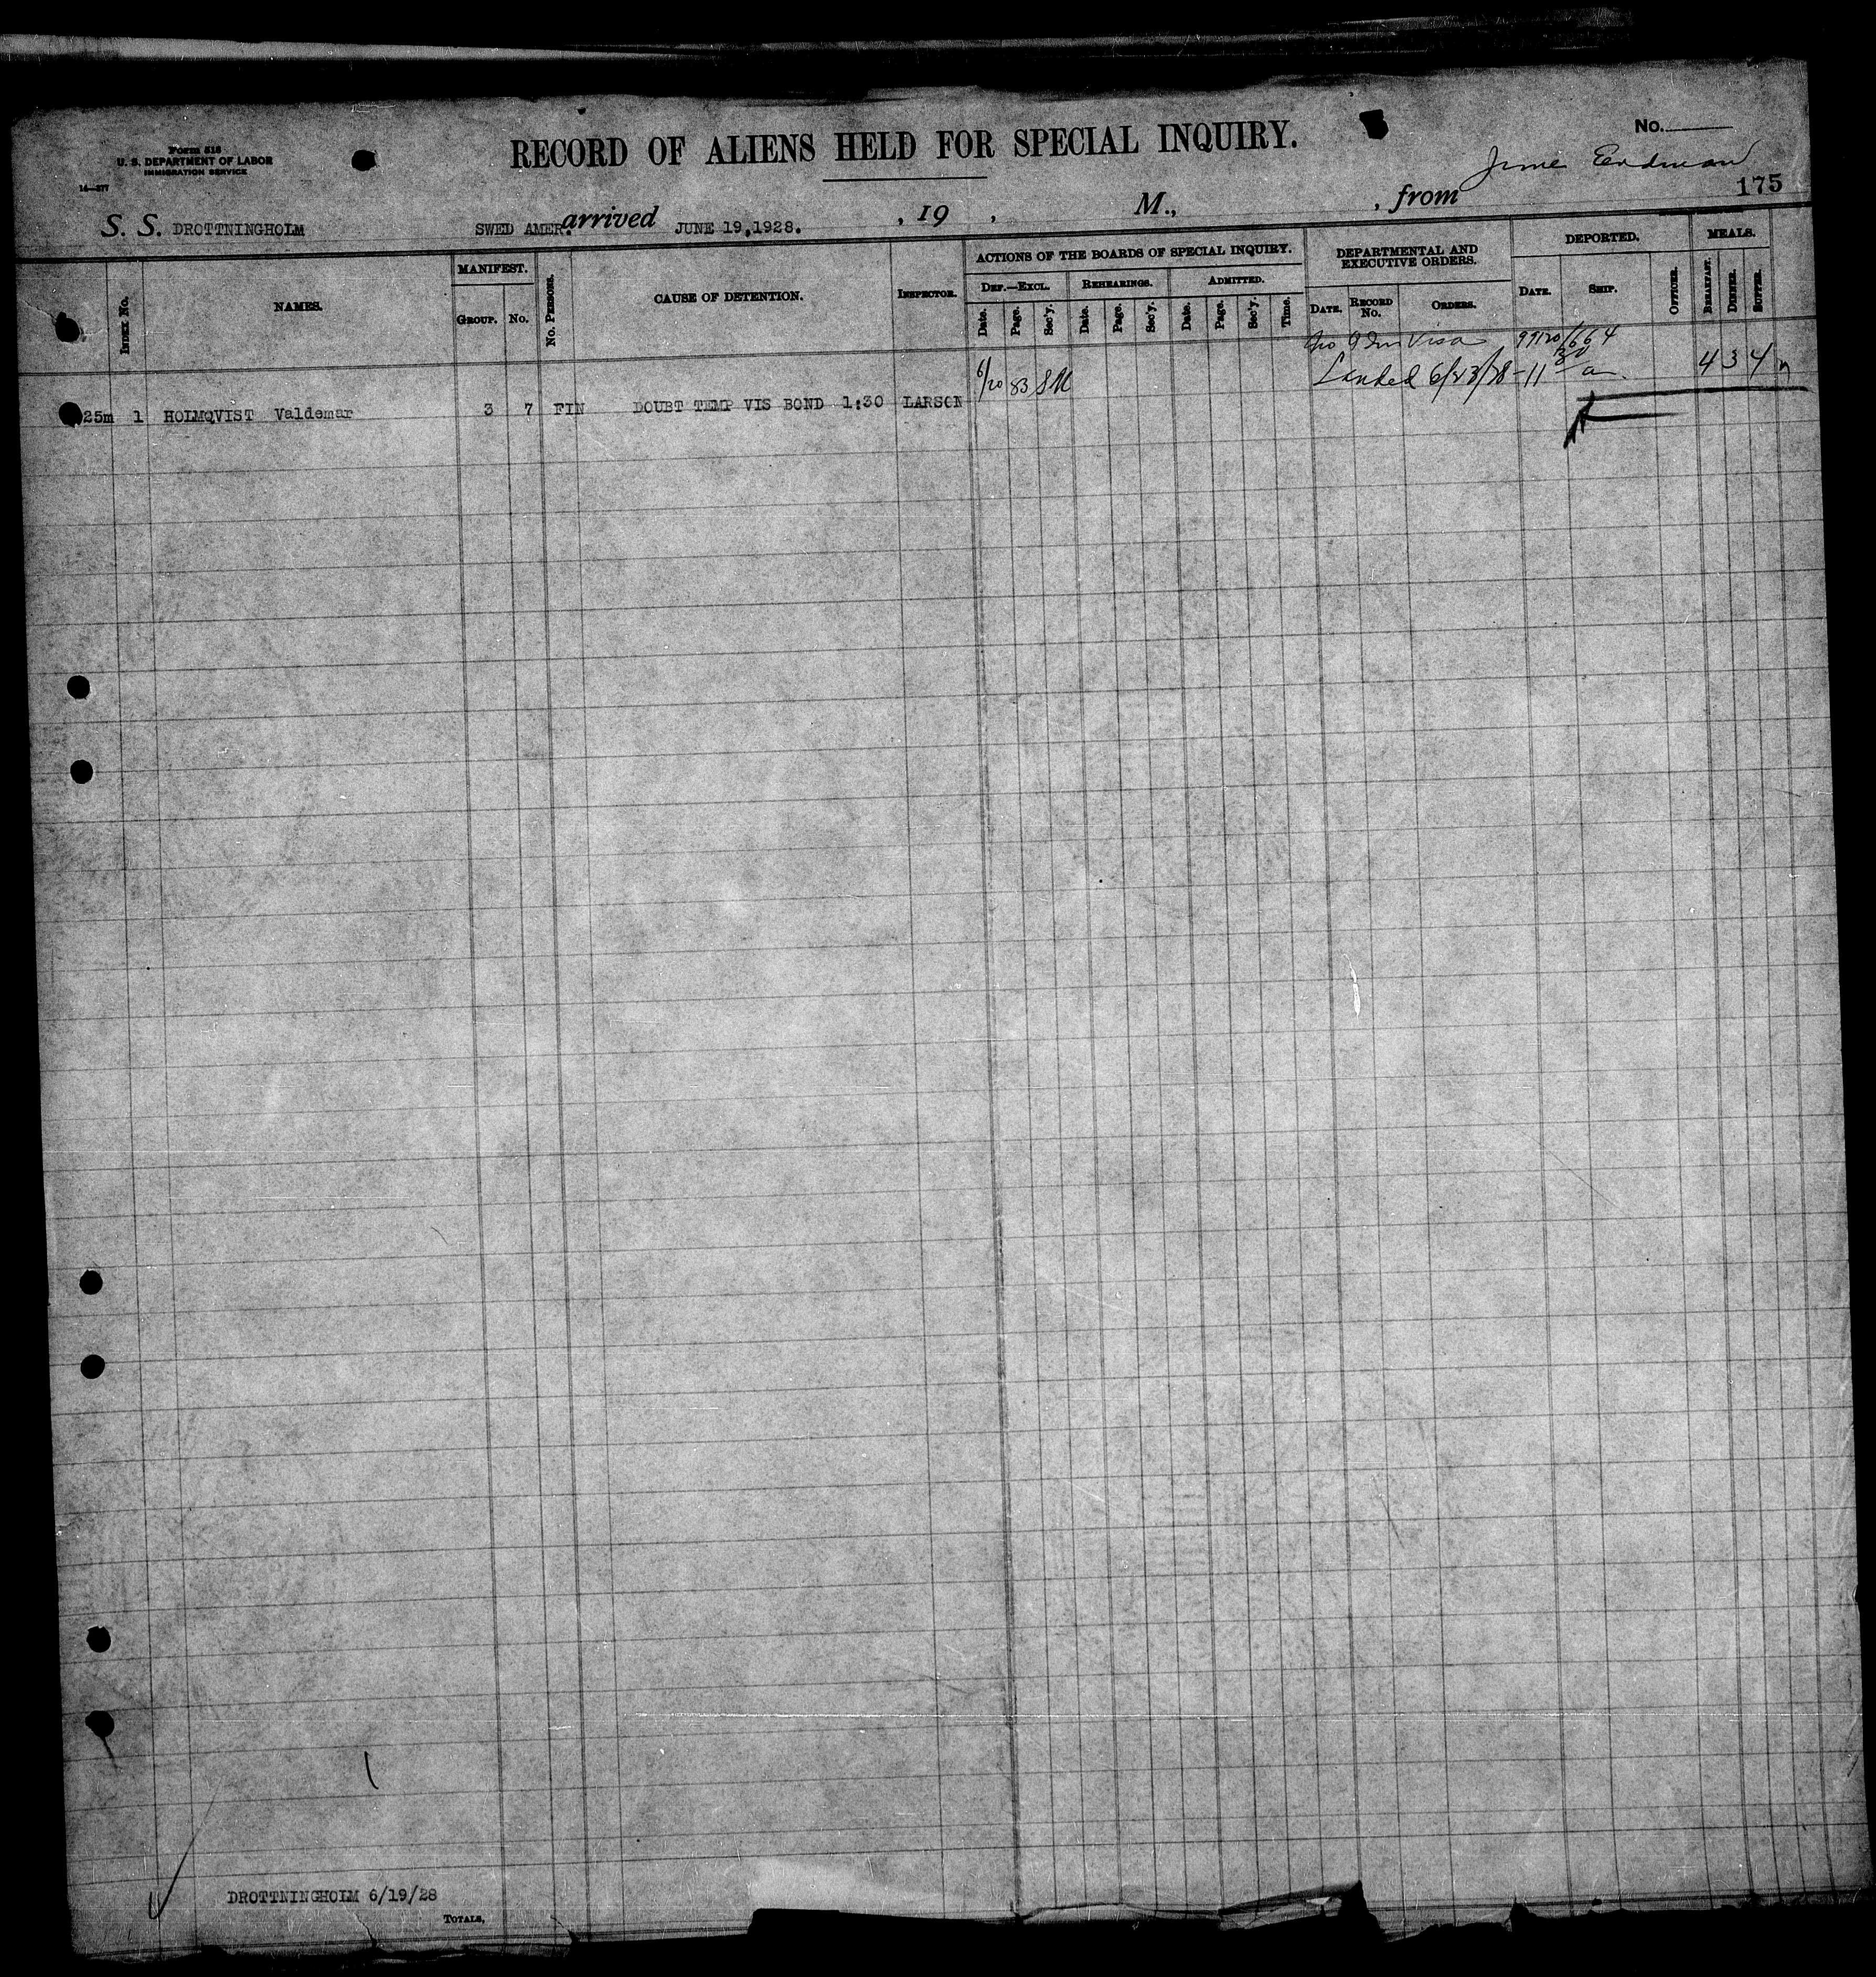 Form 518
U. S. DEPARTMENT OF LABOR
IMMIGRATION SERVICE
RECORD OF ALIENS HELD FOR SPECIAL INQUIRY.
No.
175
S. S. DROTTNINGHOLM SWED AMER. arrived JUNE 19,1928. , 19 , M., , from
Index No.
NAMES.
MANIFEST.
Group. No.
No. Persons.
CAUSE OF DETENTION.
Inspector.
ACTIONS OF THE BOARDS OF SPECIAL INQUIRY.
Def.—Excl. Rehearings. Admitted.
Date. Page. Sec'y. Date. Page. Sec'y. Date. Page. Sec'y. Time.
DEPARTMENTAL AND
EXECUTIVE ORDERS.
Date. Record No. Orders.
DEPORTED.
Date. Ship. Officer.
MEALS.
Breakfast. Dinner. Supper.
Visa 99120/664
6/20 83 Landed 6/23/28-11 30 a 4 3 4
25m 1 HOLMQVIST Valdemar 3 7 FIN DOUBT TEMP VIS BOND 1:30 LARSON
DROTTNINGHOLM 6/19/28
Totals,